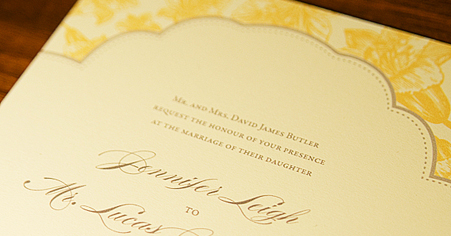 Mr. and Mrs. David James Butler
request the honour of your presence
at the marriage of their daughter
Jennifer Leigh
to
Mr. Lucas